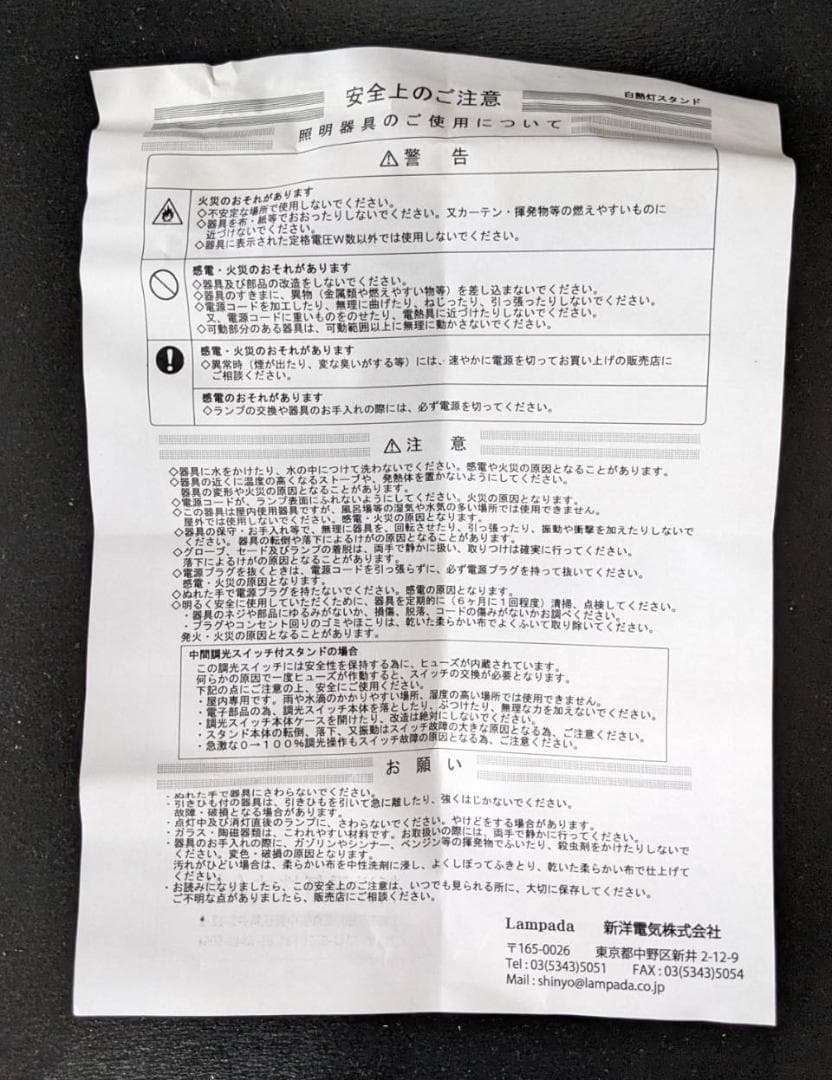 安全上のご注意
白熱灯スタンド
照明器具のご使用について
⚠警 告
火災のおそれがあります
◇不安定な場所で使用しないでください。
◇器具を布・紙等でおおったりしないでください。又カーテン・揮発物等の燃えやすいものに
近づけないでください。
◇器具に表示された定格電圧W数以外では使用しないでください。
感電・火災のおそれがあります
◇器具及び部品の改造をしないでください。
◇器具のすきまに、異物（金属類や燃えやすい物等）を差し込まないでください。
◇電源コードを加工したり、無理に曲げたり、ねじったり、引っ張ったりしないでください。
又、電源コードに重いものをのせたり、電熱具に近づけたりしないでください。
◇可動部分のある器具は、可動範囲以上に無理に動かさないでください。
感電・火災のおそれがあります
◇異常時（煙が出たり、変な臭いがする等）には、速やかに電源を切ってお買い上げの販売店に
ご相談ください。
感電のおそれがあります
◇ランプの交換や器具のお手入れの際には、必ず電源を切ってください。
⚠注 意
◇器具に水をかけたり、水の中につけて洗わないでください。感電や火災の原因となることがあります。
◇器具の近くに温度の高くなるストーブや、発熱体を置かないようにしてください。
器具の変形や火災の原因となることがあります。
◇電源コードが、ランプ表面にふれないようにしてください。火災の原因となります。
◇この器具は屋内使用器具ですが、風呂場等の湿気や水気の多い場所では使用できません。
屋外では使用しないでください。感電・火災の原因となります。
◇器具の保守・お手入れ等で、無理に器具を、回転させたり、引っ張ったり、振動や衝撃を加えたりしないで
ください。器具の転倒や落下によるけがの原因となることがあります。
◇グローブ、セード及びランプの着脱は、両手で静かに扱い、取りつけは確実に行ってください。
落下によるけがの原因となることがあります。
◇電源プラグを抜くときは、電源コードを引っ張らずに、必ず電源プラグを持って抜いてください。
感電・火災の原因となります。
◇ぬれた手で電源プラグを持たないでください。感電の原因となります。
◇明るく安全に使用していただくために、器具を定期的に（６ヶ月に１回程度）清掃、点検してください。
・器具のネジや部品にゆるみがないか、損傷、脱落、コードの傷みがないかお調べください。
・プラグやコンセント回りのゴミやほこりは、乾いた柔らかい布でよくふいて取り除いてください。
発火・火災の原因となることがあります。
中間調光スイッチ付スタンドの場合
この調光スイッチには安全性を保持する為に、ヒューズが内蔵されています。
何らかの原因で一度ヒューズが作動すると、スイッチの交換が必要となります。
下記の点にご注意の上、安全にご使用ください。
・屋内専用です。雨や水滴のかかりやすい場所、湿度の高い場所では使用できません。
・電子部品の為、調光スイッチ本体を落としたり、ぶつけたり、無理な力を加えないでください。
・調光スイッチ本体ケースを開けたり、改造は絶対にしないでください。
・スタンド本体の転倒、落下、又振動はスイッチ故障の大きな原因となる為、ご注意ください。
・急激な０→１００％調光操作もスイッチ故障の原因となる為、ご注意ください。
お 願 い
・ぬれた手で器具にさわらないでください。
・引きひも付の器具は、引きひもを引いて急に離したり、強くはじかないでください。
故障・破損となる場合があります。
・点灯中及び消灯直後のランプに、さわらないでください。やけどをする場合があります。
・ガラス・陶磁器類は、こわれやすい材料です。お取扱いの際には、両手で静かに行ってください。
・器具のお手入れの際に、ガソリンやシンナー、ベンジン等の揮発物でふいたり、殺虫剤をかけたりしないで
ください。変色・破損の原因となります。
汚れがひどい場合は、柔らかい布を中性洗剤に浸し、よくしぼってふきとり、乾いた柔らかい布で仕上げて
ください。
・お読みになりましたら、この安全上のご注意は、いつでも見られる所に、大切に保存してください。
ご不明な点がありましたら、販売店にご相談ください。
Lampada 新洋電気株式会社
〒165-0026 東京都中野区新井 2-12-9
Tel : 03(5343)5051 FAX : 03(5343)5054
Mail : shinyo@lampada.co.jp